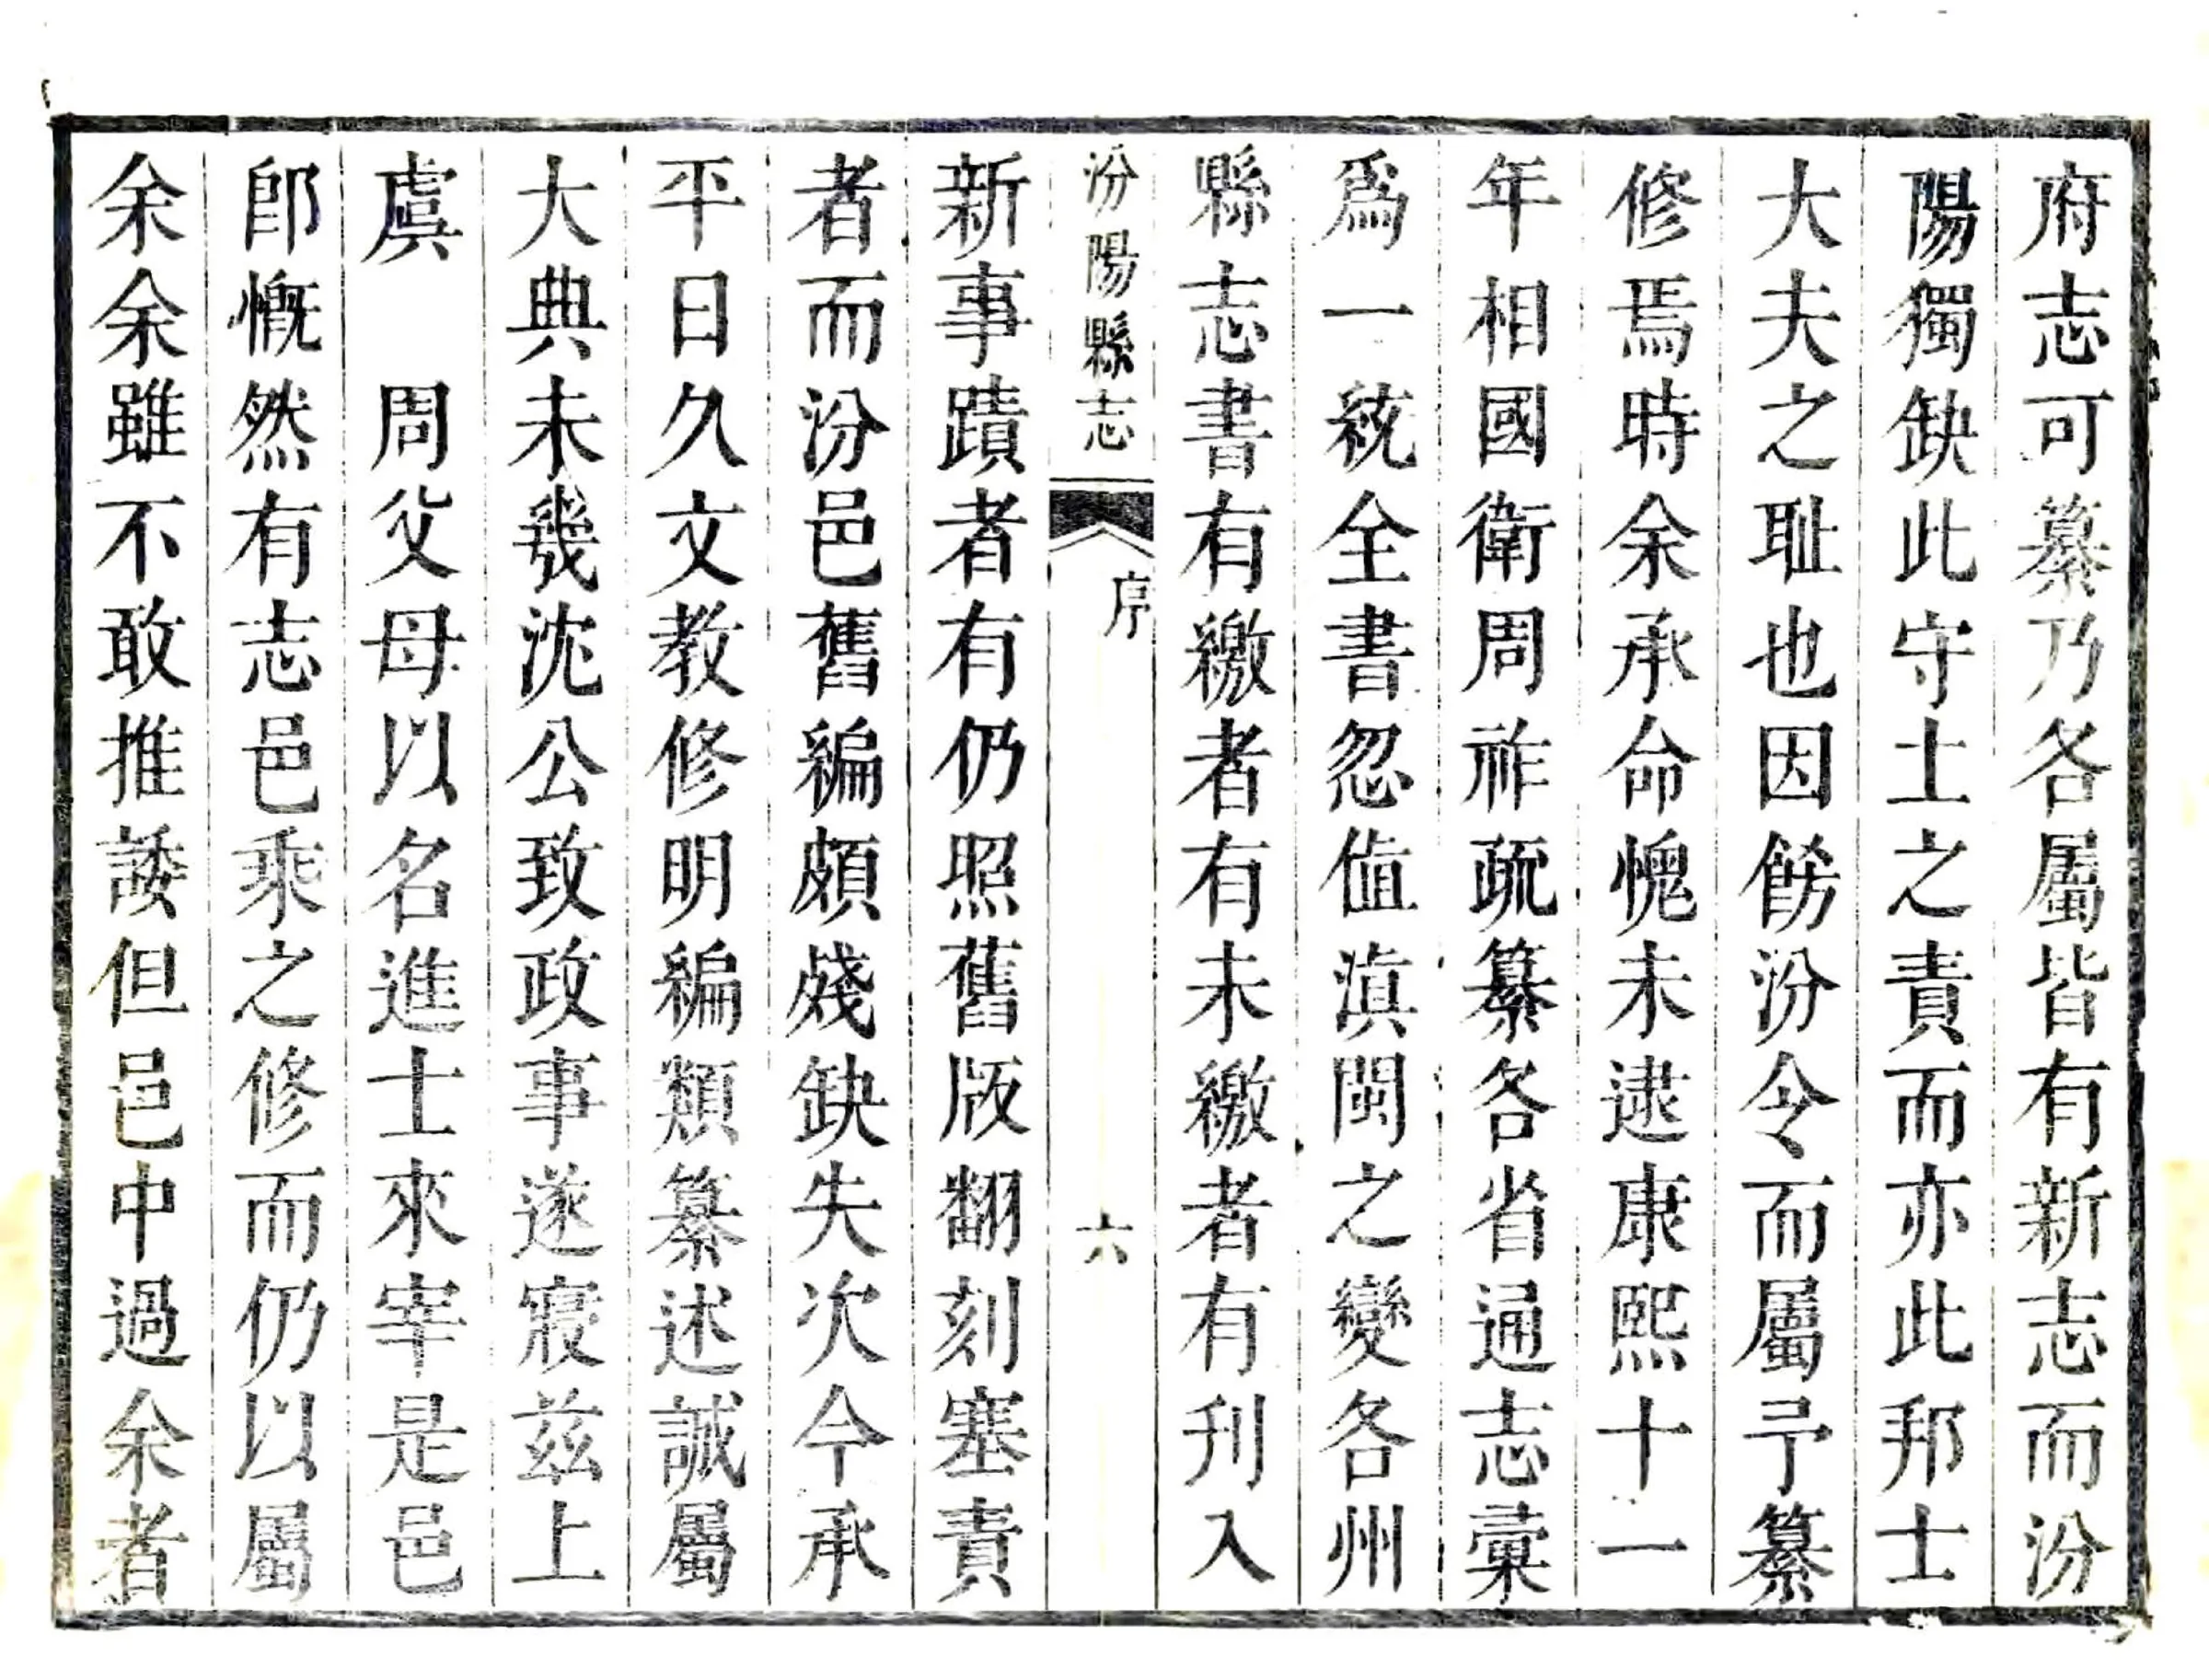 府志可纂乃各屬皆有新志而汾
陽獨缺此守土之責而亦此邦士
大夫之耻也因飭汾令而屬予纂
修焉時余承命愧未逮康熙十一
年相國衛周祚疏纂各省通志彙
爲一統全書忽值滇閩之變各州
縣志書有繳者有未繳者有刋入
汾陽縣志
序
六
新事蹟者有仍照舊版翻刻塞責
者而汾邑舊編頗殘缺失次今承
平日久文教修明編類纂述誠屬
大典未幾沈公致政事遂寢兹上
虞　周父母以名進士來宰是邑
卽慨然有志邑乘之修而仍以屬
余余雖不敢推諉但邑中過余者